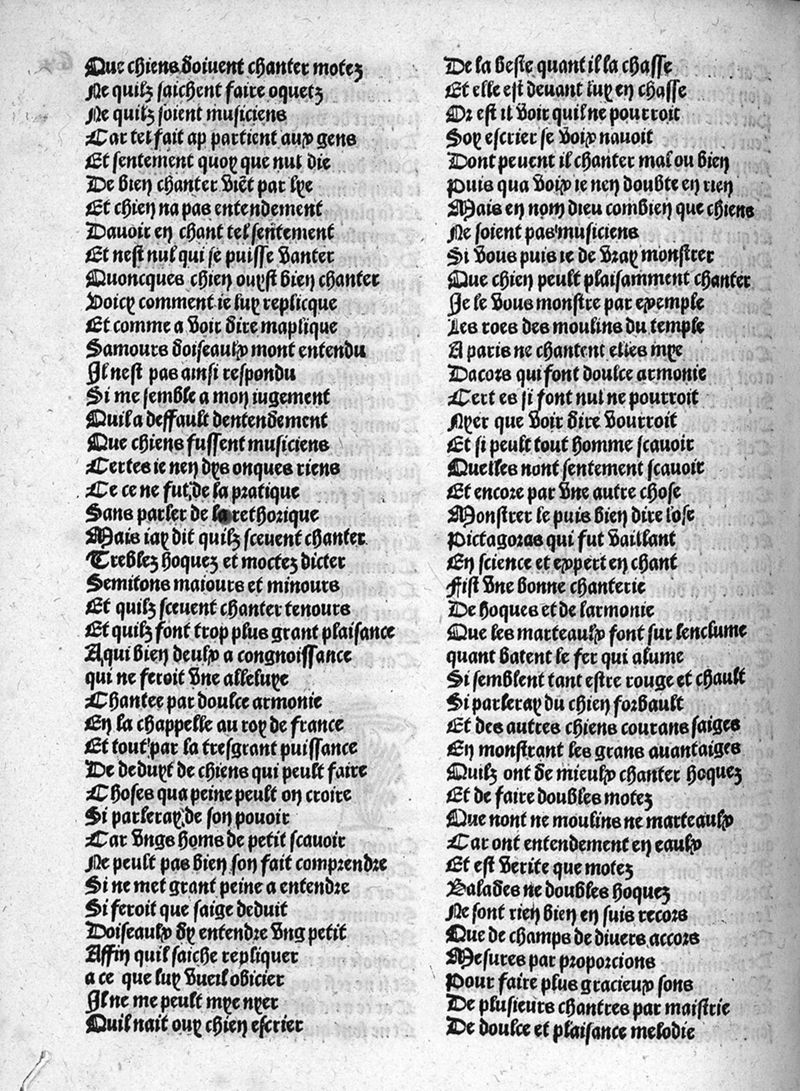 Que chiens doiuent chanter motez
Ne quilz saichent faire oquetz
Ne quilz soient musiciens
Car tel fait ap partient aux gens
Et sentement quoy que nul die
De bien chanter viẽt par lye
Et chien na pas entendement
Dauoir en chant tel sentement
Et nest nul qui se puisse vanter
Quoncques chien ouyst bien chanter
Voicy comment ie luy replicque
Et comme a voir dire maplique
Samours doiseaulx mont entendu
Il nest pas ainsi respondu
Si me semble a mon iugement
Quil a deffault dentendement
Que chiens fussent musiciens
Certes ie nen dys onques riens
Ce ce ne fut de la pratique
Sans parler de la rethorique
Mais iay dit quilz sceuent chanter
Treblez hoquez et moctez dicter
Semitons maiours et minours
Et quilz sceuent chanter tenours
Et quilz font trop plus grant plaisance
A qui bien deulx a congnoissance
qui ne feroit vne alleluye
Chantee par doulce armonie
En la chappelle au roy de france
Et tout par la tresgrant puissance
De deduyt de chiens qui peult faire
Choses qua peine peult on croire
Si parleray de son pouoir
Car vngs homs de petit scauoir
Ne peult pas bien son fait comprendre
Si ne met grant peine a entendre
Si feroit que saige deduit
Doiseaulx dy entendre vng petit
Affin quil saiche repliquer
a ce que luy vueil obicier
Il ne me peult mye nyer
Quil nait ouy chien escrier
De la beste quant il la chasse
Et elle est deuant luy en chasse
Or est il voir quil ne pourroit
Soy escrier se voix nauoit
Dont peuent il chanter mal ou bien
Puis qua voix ie nen doubte en rien
Mais en nom dieu combien que chiens
Ne soient pas musiciens
Si vous puis ie de vray monstrer
Que chien peult plaisamment chanter
Je le vous monstre par exemple
Les roes des moulins du temple
A paris ne chantent elles mye
Dacors qui font doulce armonie
Cert es si font nul ne pourroit
Nyer que voir dire vourroit
Et si peult tout homme scauoir
Quelles nont sentement scauoir
Et encore par vne autre chose
Monstrer le puis bien dire lose
Pictagoras qui fut vaillant
En science et expert en chant
Fist vne bonne chanterie
De hoques et de larmonie
Que les marteaulx font sur lenclume
quant batent le fer qui alume
Si semblent tant estre rouge et chault
Si parleray du chien forbault
Et des autres chiens courans saiges
En monstrant les grans auantaiges
Quilz ont de mieulx chanter hoquez
Et de faire doubles motez
Que nont ne moulins ne marteaulx
Car ont entendement en eaulx
Et est verite que motez
Balades ne doubles hoquez
Ne sont rien bien en suis recors
Que de champs de diuers accors
Mesures par proporcions
Pour faire plus gracieux sons
De plusieurs chantres par maistrie
De doulce et plaisance melodie